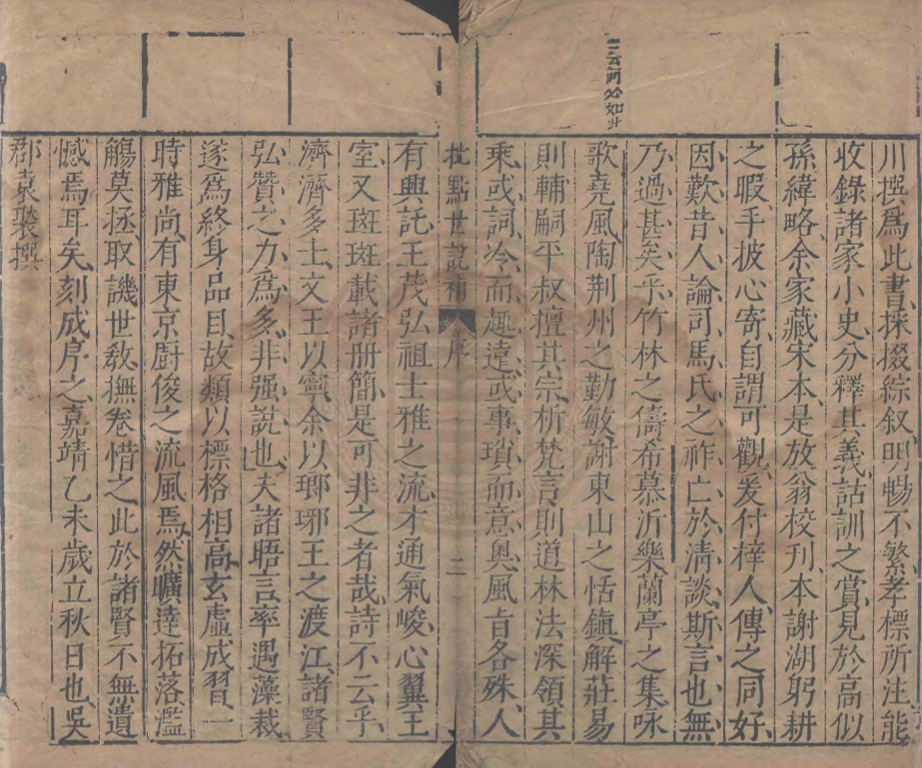 三云何必如此
川撰爲此書採掇綜叙明暢不繁孝標所注能
收錄諸家小史分釋其義詁訓之賞見於高似
孫緯略余家藏宋本是放翁校刊本謝湖躬耕
之暇手披心寄自謂可觀爰付梓人傳之同好
因歎昔人論司馬氏之祚亡於清談斯言也無
乃過甚矣乎竹林之儔希慕沂樂蘭亭之集咏
歌堯風陶荆州之勤敏謝東山之恬鎭解莊易
則輔嗣平叔擅其宗析梵言則道林法深領其
乘或詞冷而趣遠或事瑣而意奧風旨各殊人
批點世說補 序 二
有興託王茂弘祖士雅之流才通氣峻心翼王
室又斑斑載諸册簡是可非之者哉詩不云乎
濟濟多士文王以寧余以瑯琊王之渡江諸賢
弘贊之力爲多非强說也夫諸晤言率遇藻裁
遂爲終身品目故類以標格相高玄虛成習一
時雅尚有東京厨俊之流風焉然曠達拓落濫
觴莫拯取譏世敎撫卷惜之此於諸賢不無遺
憾焉耳矣刻成序之嘉靖乙未歲立秋日也吳
郡袁褧撰